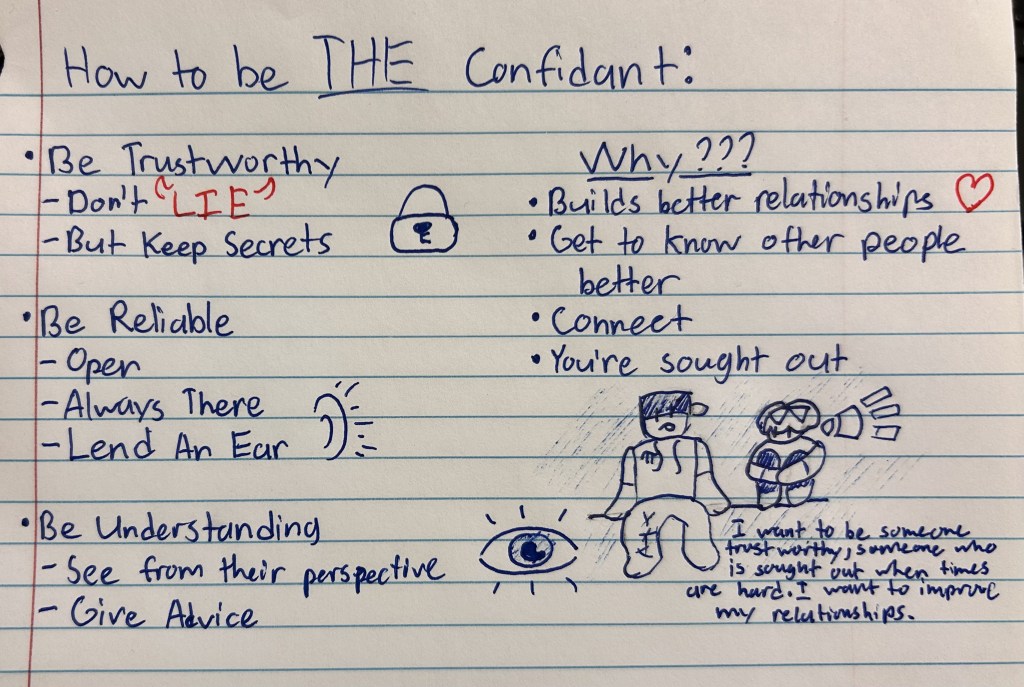 How to be THE Confidant:
• Be Trustworthy
- Don't "LIE"
- But Keep Secrets
• Be Reliable
- Open
- Always There
- Lend An Ear
• Be Understanding
- See from their perspective
- Give Advice
Why???
• Builds better relationships
• Get to know other people
better
• Connect
• You're sought out
I want to be someone
trustworthy, someone who
is sought out when times
are hard. I want to improve
my relationships.